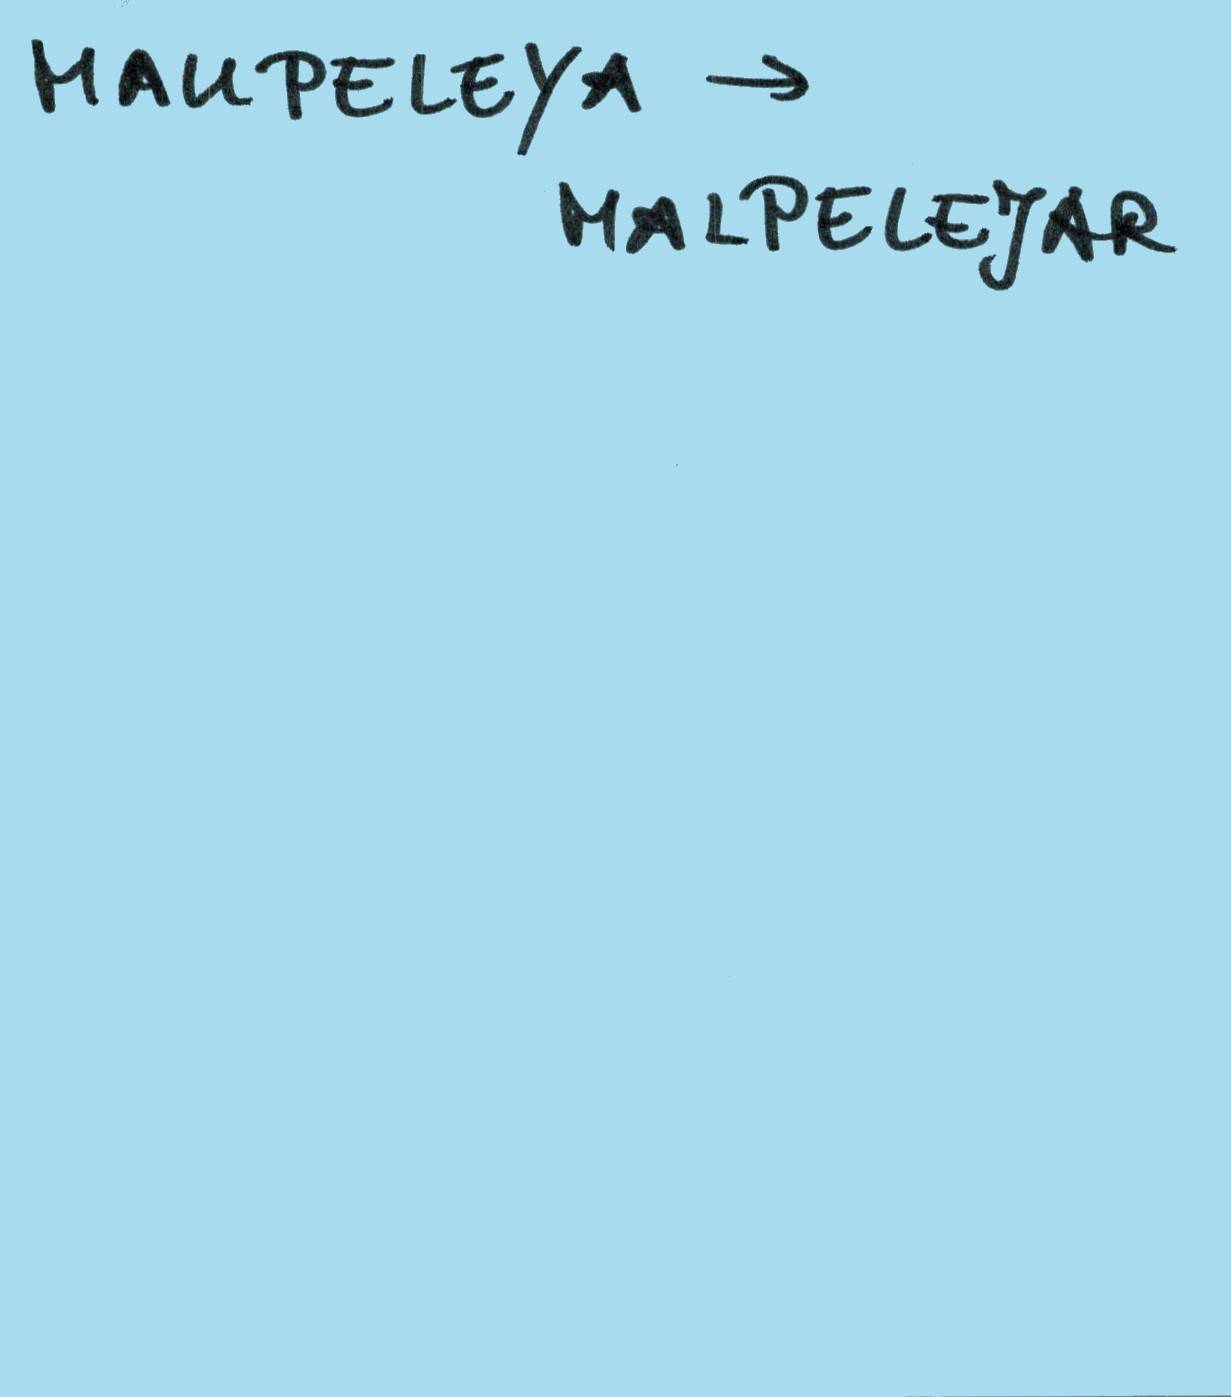 MAUPELEYA →
MALPELEJAR